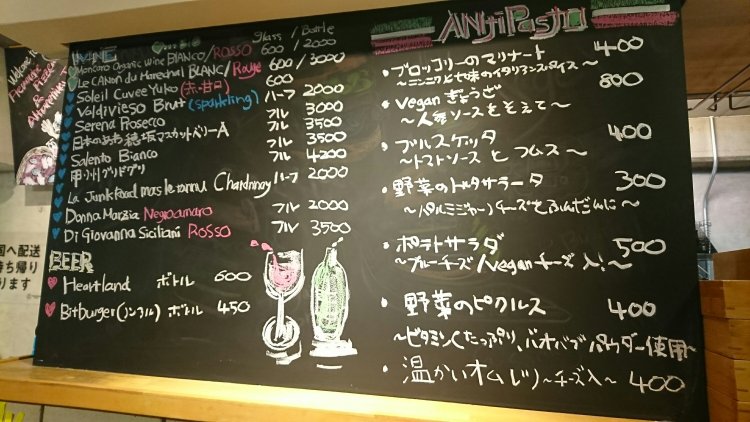 WINE
glass / Bottle
Moncaro Organic wine BIANCO/ROSSO 600 / 2000
Le CANON du Marechal BLANC/Rouge 600 / 3000
Soleil Cuvee Yuko (赤・甘口) 600
Valdivieso Brut (sparkling) ハーフ 2000
Serena Prosecco フル 3000
日本のあわ 穂坂マスカットベリーA フル 3500
Salento Bianco フル 3500
甲州グリドグリ フル 4200
La Junkfood Chardonnay ハーフ 2000
Donna Marzia Negroamaro フル 2000
Di Giovanna Siciliani Rosso フル 3500
BEER
Heartland ボトル 600
Bitburger (ノンアル) ボトル 450
AntiPasta
・ブロッコリーのマリナート 400
～ニンニクと七味のイタリアンスパイス～
・Veganぎょうざ 800
～人参ソースをそえて～
・ブルスケッタ 400
～トマトソースとフムス～
・野菜の サラータ 300
～パルミジャーノチーズをふんだんに～
・ポテトサラダ 500
～ブルーチーズ/Veganチーズ入！～
・野菜のピクルス 400
～ビタミンCたっぷり、バオバブパウダー使用～
・温かいオムレツ～チーズ入～ 400
国へ配送
持ち帰り
ります